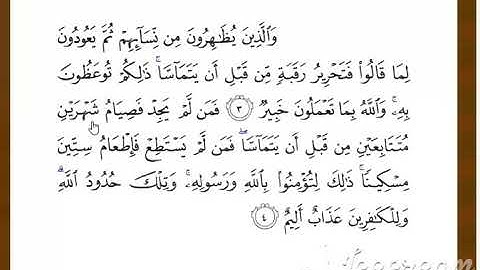 وَٱلَّذِينَ يُظَـٰهِرُونَ مِن نِّسَآئِهِمْ ثُمَّ يَعُودُونَ
لِمَا قَالُوا۟ فَتَحْرِيرُ رَقَبَةٍ مِّن قَبْلِ أَن يَتَمَآسَّا ۚ ذَٰلِكُمْ تُوعَظُونَ
بِهِۦ ۚ وَٱللَّهُ بِمَا تَعْمَلُونَ خَبِيرٌ ٣ فَمَن لَّمْ يَجِدْ فَصِيَامُ شَهْرَيْنِ
مُتَتَابِعَيْنِ مِن قَبْلِ أَن يَتَمَآسَّا ۖ فَمَن لَّمْ يَسْتَطِعْ فَإِطْعَامُ سِتِّينَ
مِسْكِينًا ۚ ذَٰلِكَ لِتُؤْمِنُوا۟ بِٱللَّهِ وَرَسُولِهِۦ ۚ وَتِلْكَ حُدُودُ ٱللَّهِ ۗ
وَلِلْكَـٰفِرِينَ عَذَابٌ أَلِيمٌ ٤